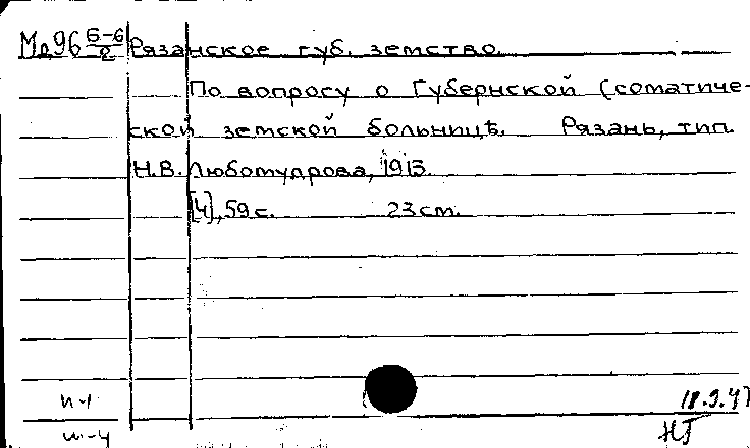 Мд96 Б-6/2 Рязанское губ. земство.
По вопросу о Губернской (соматиче-
ской земской больницѣ. Рязань, тип.
Н.В. Любомудрова, 1913.
[4], 59 с. 23 cm.
18.9.47